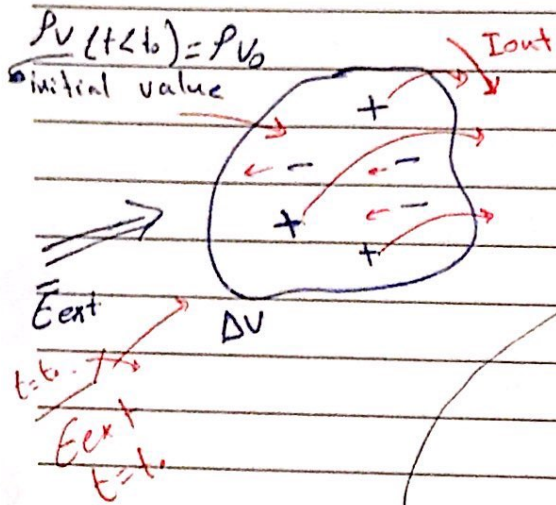 ρv (t<t₀) = ρv₀
initial value
Iout
+
- -
-
+
+
Eext
ΔV
t=t₀
Eext
t=t₀